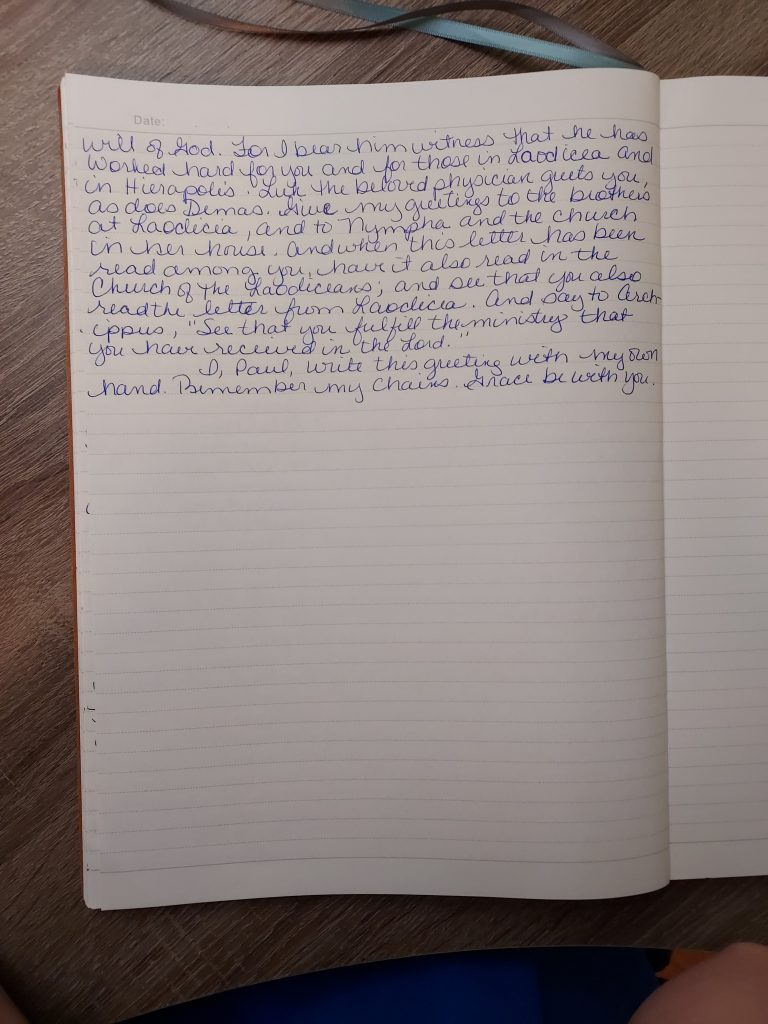 Date:
will of God. For I bear him witness that he has
worked hard for you and for those in Laodicea and
in Hierapolis. Luke the beloved physician greets you,
as does Demas. Give my greetings to the brothers
at Laodicia, and to Nympha and the church
in her house. And when this letter has been
read among you, have it also read in the
Church of the Laodiceans; and see that you also
read the letter from Laodicea. And say to Arch-
ippus, "See that you fulfill the ministry that
you have received in the Lord."
I, Paul, write this greeting with my own
hand. Remember my Chains. Grace be with you.